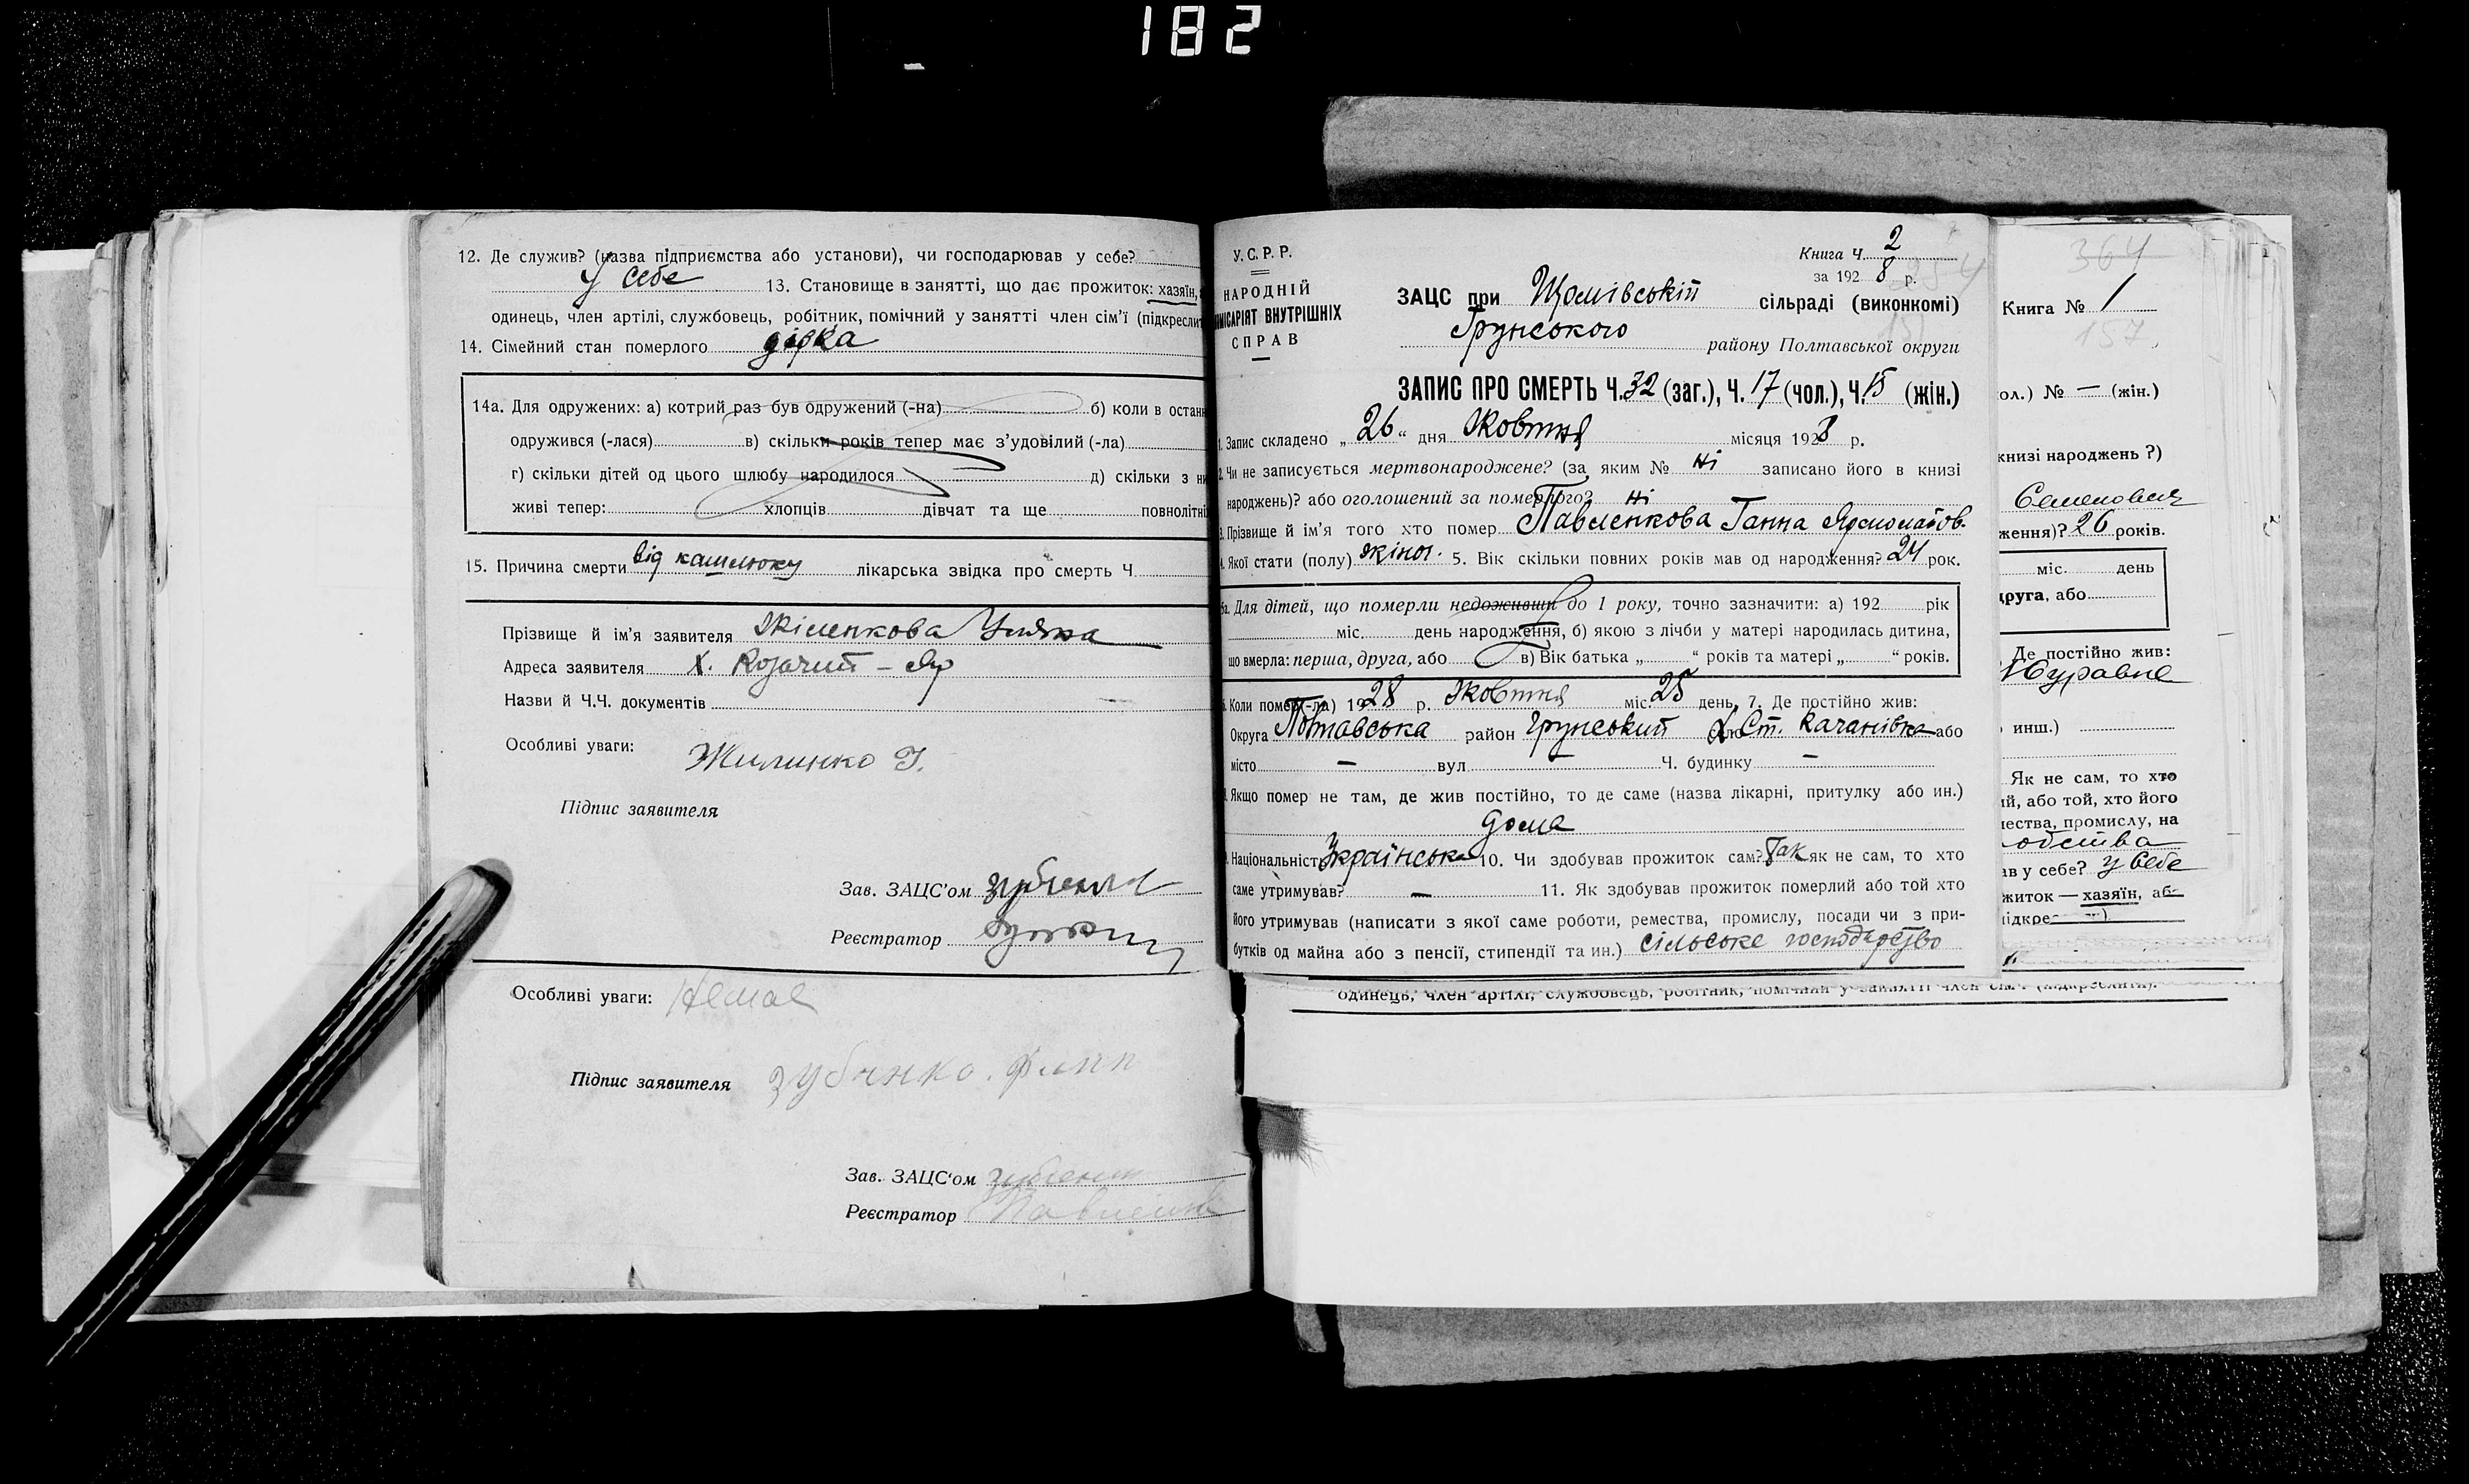 182
12. Де служив? (назва підприємства або установи), чи господарював у себе?
у себе 13. Становище в занятті, що дає прожиток: хазяїн,
одинець, член артілі, службовець, робітник, помічний у занятті член сім'ї (підкресли
14. Сімейний стан померлого
14а. Для одружених: а) котрий раз був одружений (-на) б) коли в остан
одружився (-лася) в) скільки років тепер має з'удовілий (-ла)
г) скільки дітей од цього шлюбу народилося д) скільки з ни
живі тепер: хлопців дівчат та ще повнолітні
15. Причина смерти від кашлюку лікарська звідка про смерть Ч
Прізвище й ім'я заявителя Уляна
Адреса заявителя х. Козачий – Яр
Назви й Ч.Ч. документів
Особливі уваги:
Жилинко
Підпис заявителя
Зав. ЗАЦС'ом
Реєстратор
Особливі уваги: Немае
Підпис заявителя
Зав. ЗАЦС'ом
Реєстратор
У.С.Р.Р.
НАРОДНІЙ
МІСАРІЯТ ВНУТРІШНІХ
СПРАВ
Книга Ч. 2
за 1928 р.
ЗАЦС при сільраді (виконкомі)
Грунського району Полтавської округи
ЗАПИС ПРО СМЕРТЬ Ч. 32 (заг.), Ч. 17 (чол.), Ч. 15 (жін.)
1. Запис складено „ 26 “ дня Жовтня місяця 1928 р.
2. Чи не записується мертвонароджене? (за яким № ні записано його в книзі
народжень)? або оголошений за померлого? ні
3. Прізвище й ім'я того хто помер Павленкова Ганна
4. Якої стати (полу) жіноч. 5. Вік скільки повних років мав од народження? 24 рок.
5а. Для дітей, що померли недоживши до 1 року, точно зазначити: а) 192 рік
міс. день народження, б) якою з лічби у матері народилась дитина,
що вмерла: перша, друга, або в) Вік батька „ “ років та матері „ “ років.
6. Коли помер (-ла) 1928 р. Жовтня міс. 25 день. 7. Де постійно жив:
Округа Полтавська район Грунський Ст. Качанівка або
місто – вул Ч. будинку –
8. Якщо помер не там, де жив постійно, то де саме (назва лікарні, притулку або ин.)
дома
9. Національність Українська 10. Чи здобував прожиток сам? Так як не сам, то хто
саме утримував? – 11. Як здобував прожиток померлий або той хто
його утримував (написати з якої саме роботи, ремества, промислу, посади чи з при-
бутків од майна або з пенсії, стипендії та ин.) сільське господарство
364
Книга № 1
157
ол.) № — (жін.)
книзі народжень ?)
Семенович
ження)? 26 років.
міс. день
друга, або
Де постійно жив:
инш.)
Як не сам, то хто
ий, або той, хто його
ества, промислу, на
ав у себе? у себе
житок — хазяїн, аб
ідкре
одинець, член артілі, службовець, робітник, помічний у занятті член сім'ї (підкреслити).